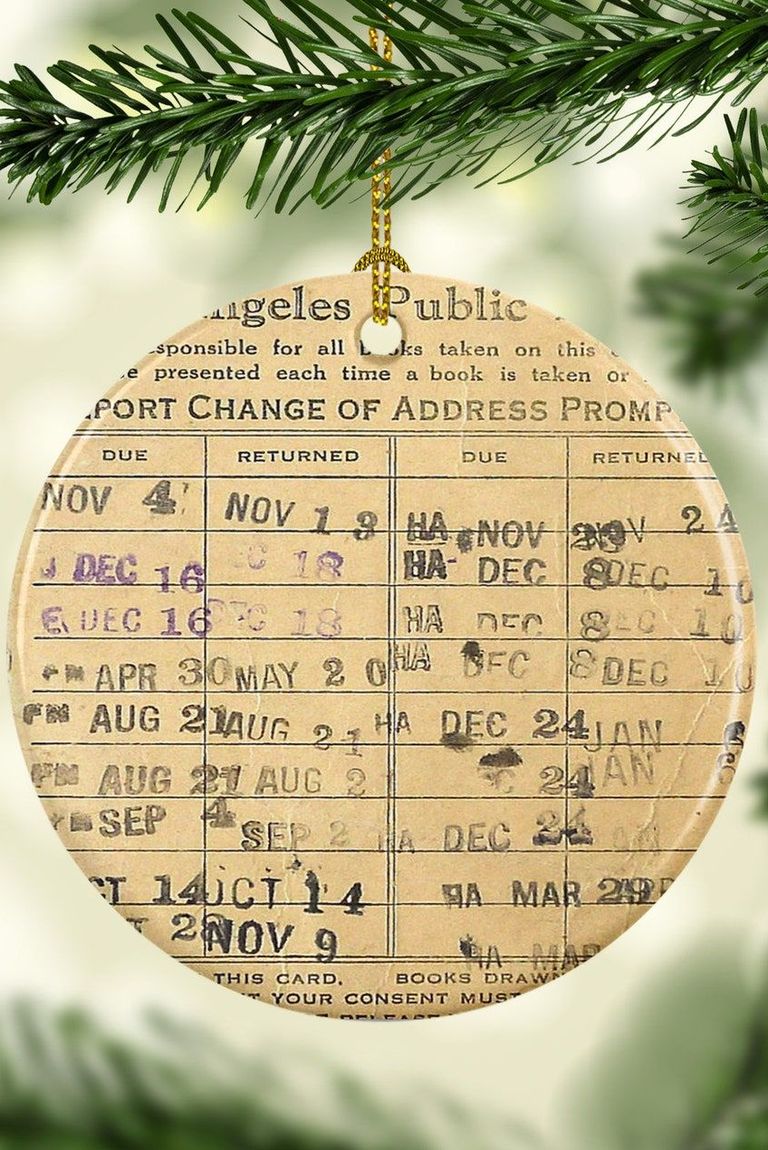 ngeles Public
sponsible for all books taken on this
e presented each time a book is taken or
PORT CHANGE OF ADDRESS PROMP
DUE RETURNED DUE RETURNED
NOV 4 NOV 13 HA NOV 28 NOV 24
DEC 16 18 HA DEC 8 DEC 10
DEC 16 18 HA DEC 8 10
APR 30 MAY 20 HA DEC 8 DEC 10
AUG 21 AUG 21 HA DEC 24 JAN
AUG 21 AUG 2 24 JAN
SEP 4 SEP 2 HA DEC 24
CT 14 OCT 14 HA MAR 29
28 NOV 9 HA MAR
THIS CARD. BOOKS DRAWN
T YOUR CONSENT MUST